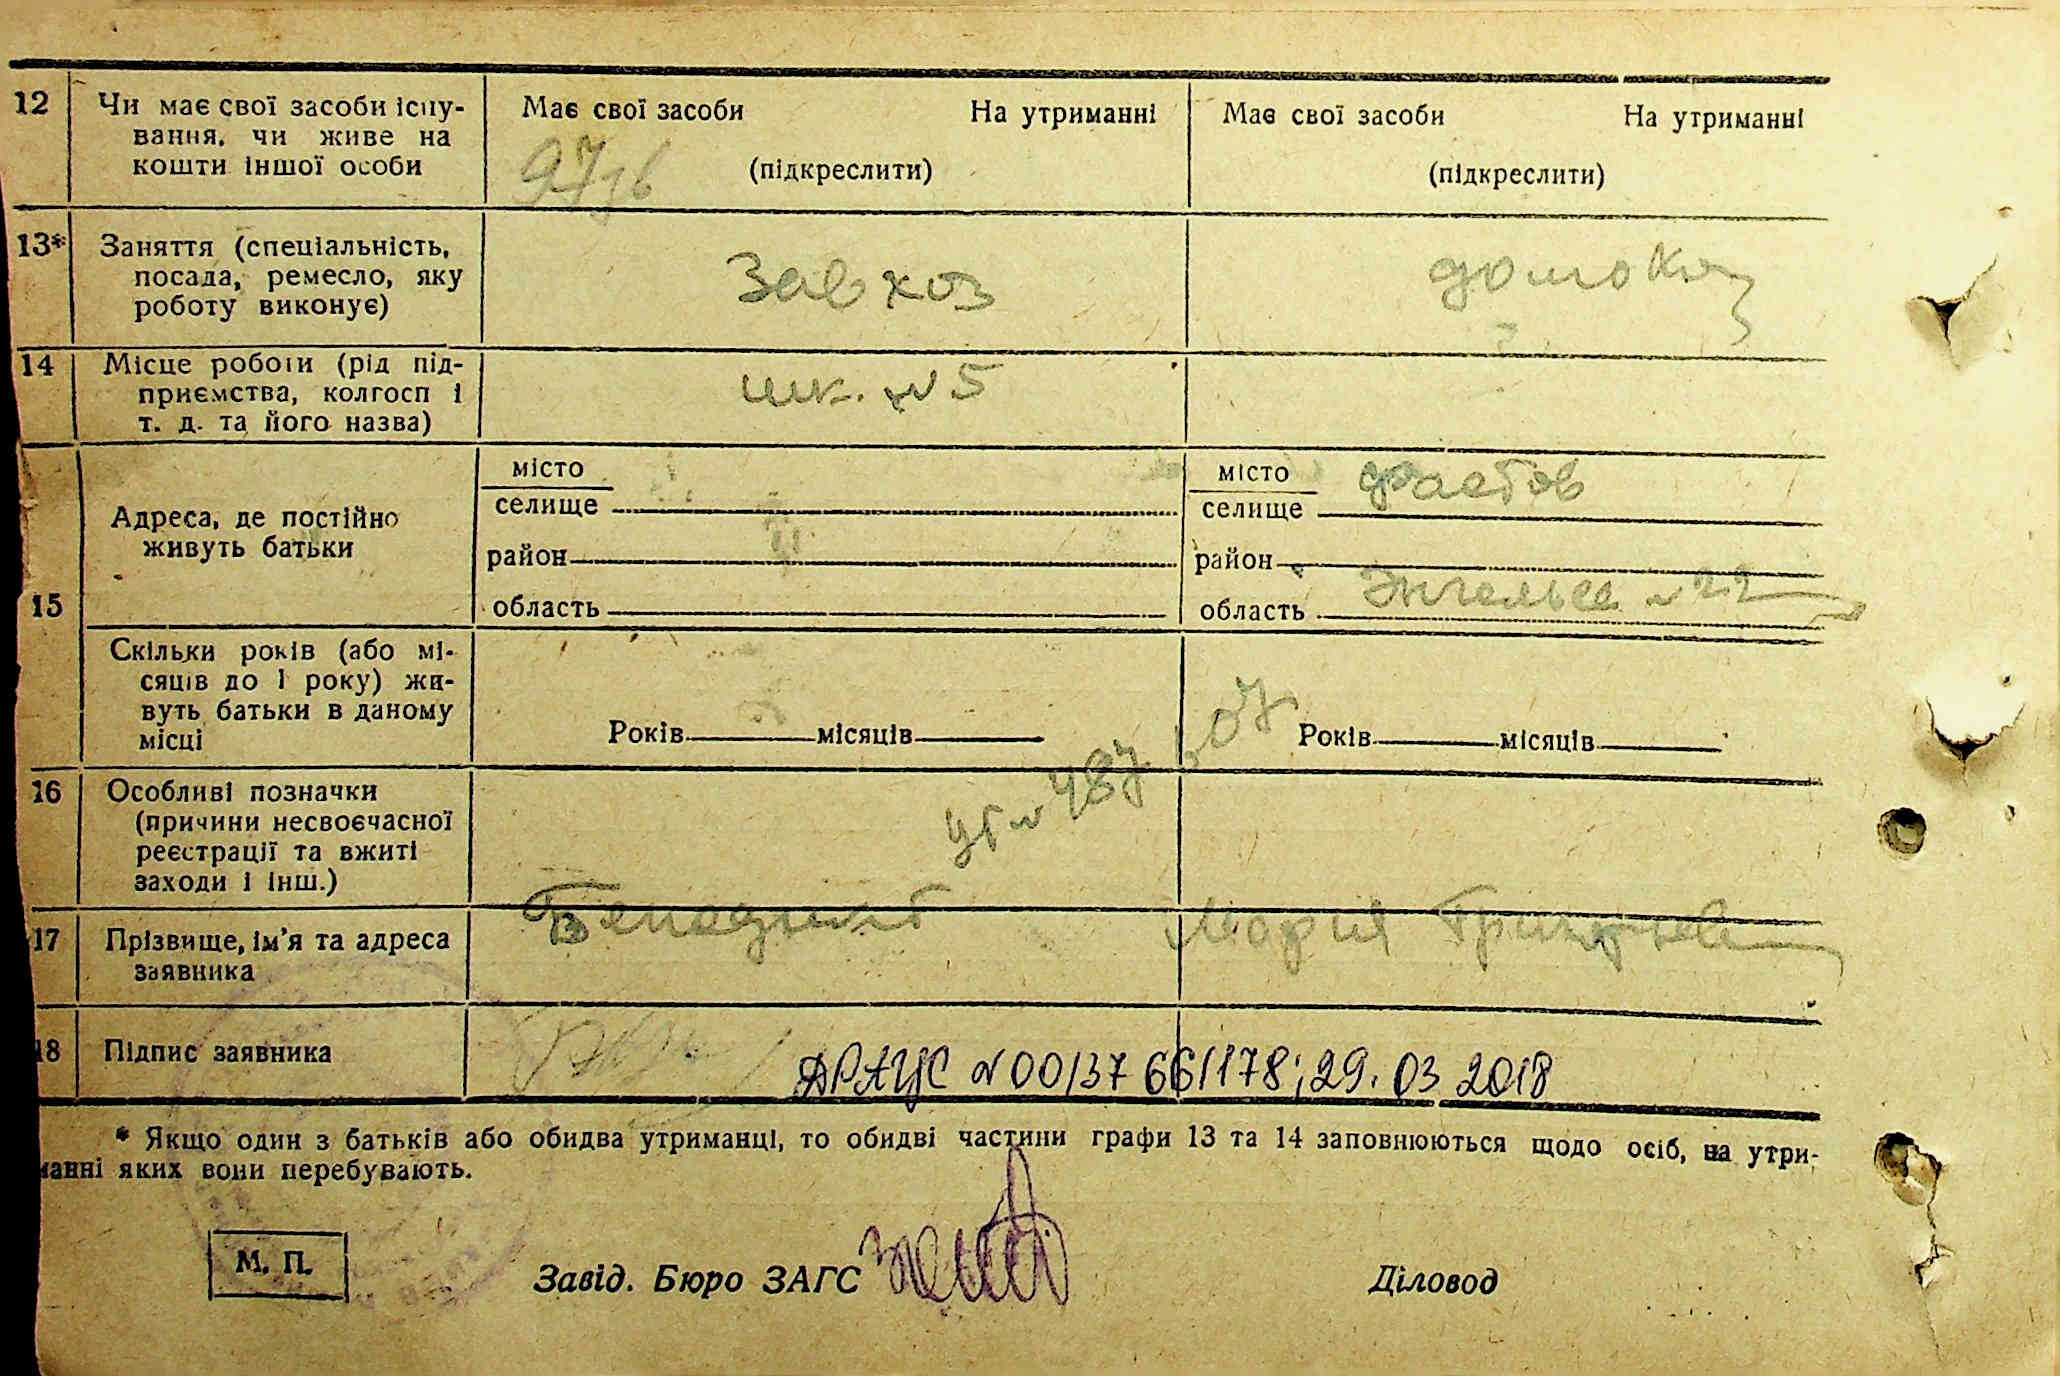 12 Чи має свої засоби існу-
вання, чи живе на
кошти іншої особи
Має свої засоби На утриманні
(підкреслити)
Має свої засоби На утриманні
(підкреслити)
13* Заняття (спеціальність,
посада, ремесло, яку
роботу виконує)
Завхоз
домохоз
14 Місце роботи (рід під-
приємства, колгосп і
т. д. та його назва)
шк. №5
15
Адреса, де постійно
живуть батьки
місто
селище
район
область
місто Фастов
селище
район
Энгельса №22
область
Скільки років (або мі-
сяців до 1 року) жи-
вуть батьки в даному
місці
Років місяців
Років місяців
16 Особливі позначки
(причини несвоєчасної
реєстрації та вжиті
заходи і інш.)
17 Прізвище, ім'я та адреса
заявника
Мария
18 Підпис заявника
ДРАЦС №00137661178; 29.03 2018
* Якщо один з батьків або обидва утриманці, то обидві частини графи 13 та 14 заповнюються щодо осіб, на утри-
манні яких вони перебувають.
М. П.
Завід. Бюро ЗАГС
Діловод